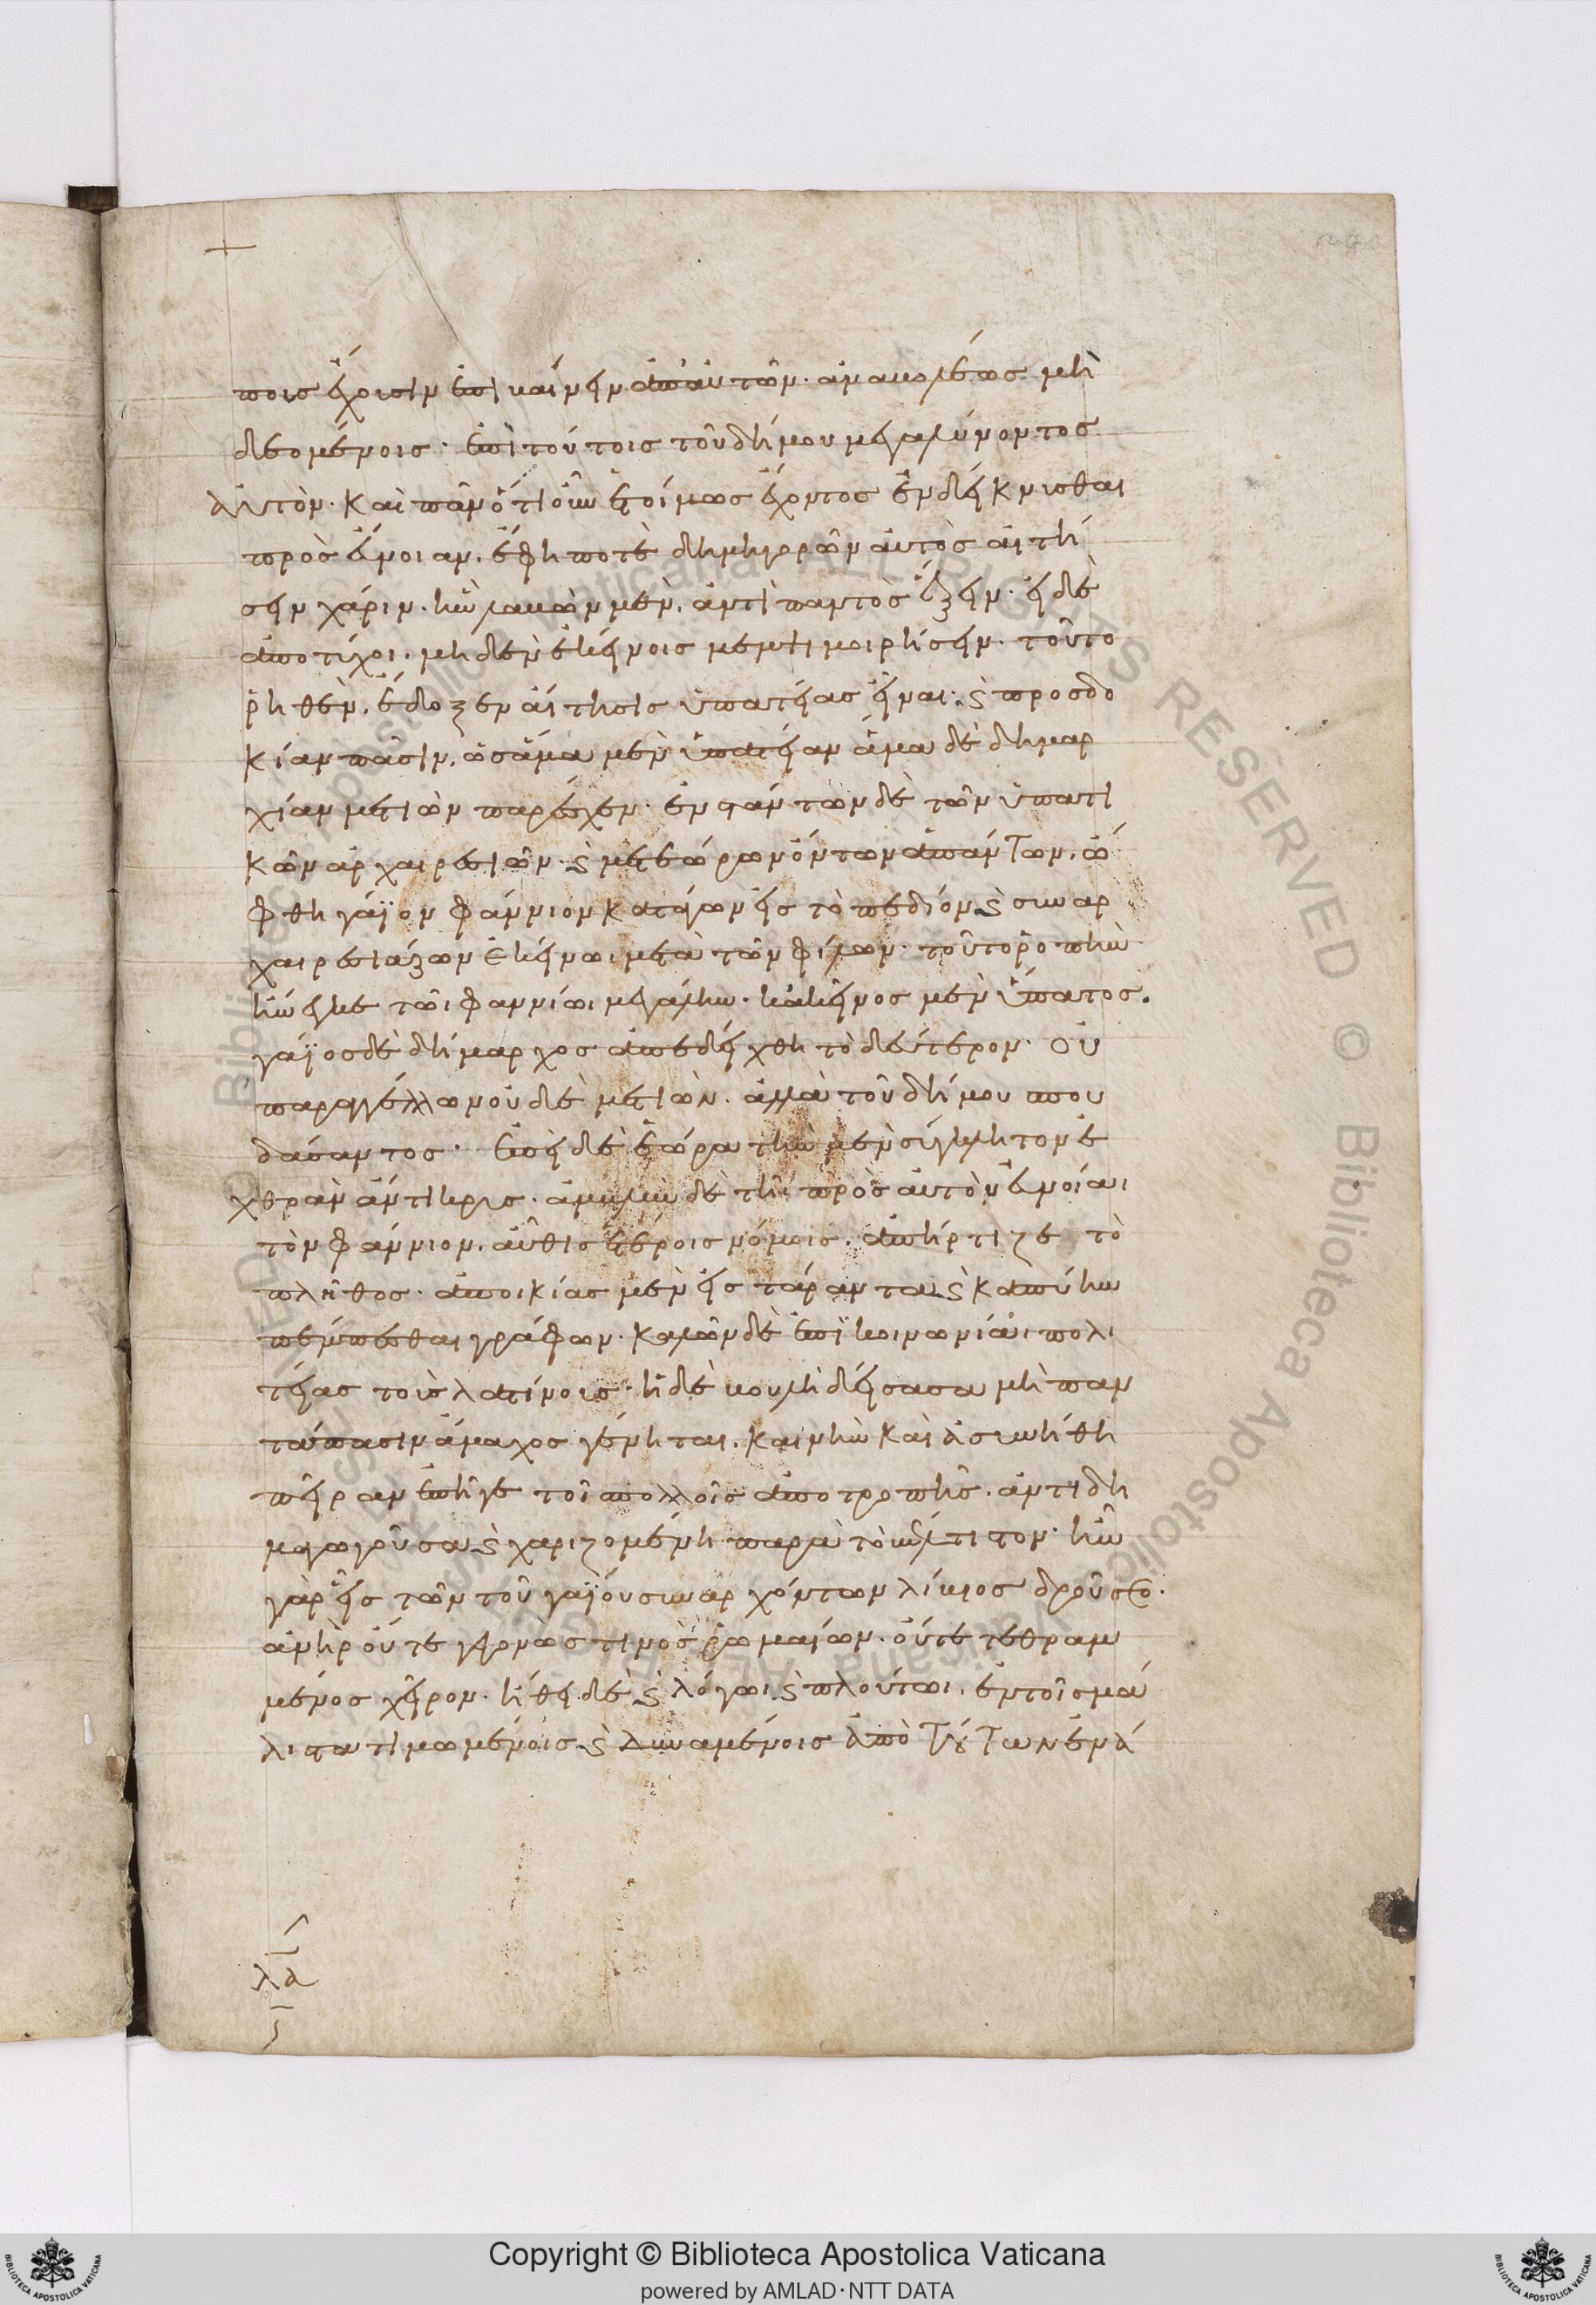 ποις ἔχουσιν ἐπικαίνειν ἀπ' αὐτῶν ἀνακολέως μὴ
δεομένοις· ἐπὶ τούτοις τοῦ δήμου μεγαλύνοντος
αὐτὸν· καὶ πᾶν ὁτιοῦν ἑτοίμως ἔχοντος ἐνδείκνυσθαι
πρὸς εὔνοιαν, ἔφη ποτὲ δημηγορῶν αὐτὸς αἰτή
σειν χάριν· ἣν λαβὼν μὲν, ἀντὶ παντὸς ἕξειν· εἰ δὲ
ἀποτύχοι, μηδὲν ἐκείνοις μεμψιμοιρήσειν· τοῦτο
ῥηθὲν, ἔδοξεν αἴτησις ὑπατείας εἶναι· ϛ προσδο
κίαν πᾶσιν, ὡς ἅμα μὲν ὑπατείαν ἅμα δὲ δημαρ
χίαν μετιὼν παρέσχεν· ἐνστάντων δὲ τῶν ὑπατι
κῶν ἀρχαιρεσιῶν· ϛ μετεώρων ὄντων ἁπάντων, ὤ
φθη γάϊον φάννιον κατάγων εἰς τὸ πεδίον ϛ συναρ
χαιρεσιάζων ἐκείνωι μετὰ τῶν φίλων· τοῦτο ῥοπὴν
ἤνεγκε τῶι φαννίωι μεγάλην· κἀκεῖνος μὲν ὕπατος.
γάϊος δὲ δήμαρχος ἀπεδείχθη τὸ δεύτερον· οὐ
παραγγέλλων οὐδὲ μετιὼν· ἀλλὰ τοῦ δήμου σπου
δάσαντος· ἐπεὶ δὲ ἑώρα τὴν μὲν σύγκλητον ἐ
χθρὰν ἄντικρυς· ἀμβλὺν δὲ τῆι πρὸς αὐτὸν εὐνοίαι
τὸν φάννιον, αὖθις ἑτέροις νόμοις, ἀπήρτιζε τὸ
πλῆθος· ἀποικίας μὲν εἰς τάραντα ϛ καπύην
πέμπεσθαι γράφων· καλῶν δὲ ἐπὶ κοινωνίαι πολι
τείας τοὺς λατίνους· ἡ δὲ βουλὴ δείσασα μὴ παν
τάπασιν ἄμαχος γένηται, καινὴν καὶ ἀσυνήθη
πεῖραν ἐπῆγε τοῖς πολλοῖς ἀποτροπῆς, ἀντιδη
μαγωγοῦσα ϛ χαριζομένη παρὰ τὸ βέλτιστον· ἦν
γὰρ εἷς τῶν τοῦ γαΐου συναρχόντων λίβιος δροῦσος·
ἀνὴρ οὔτε γεγονὼς τινὸς ῥωμαίων· οὔτε τεθραμ
μένος χεῖρον· ἤθει δὲ ϛ λόγωι ϛ πλούτωι, ἐν τοῖς μά
λιστα τιμωμένοις ϛ δυναμένοις ἀπὸ τούτων ἐνά
λα